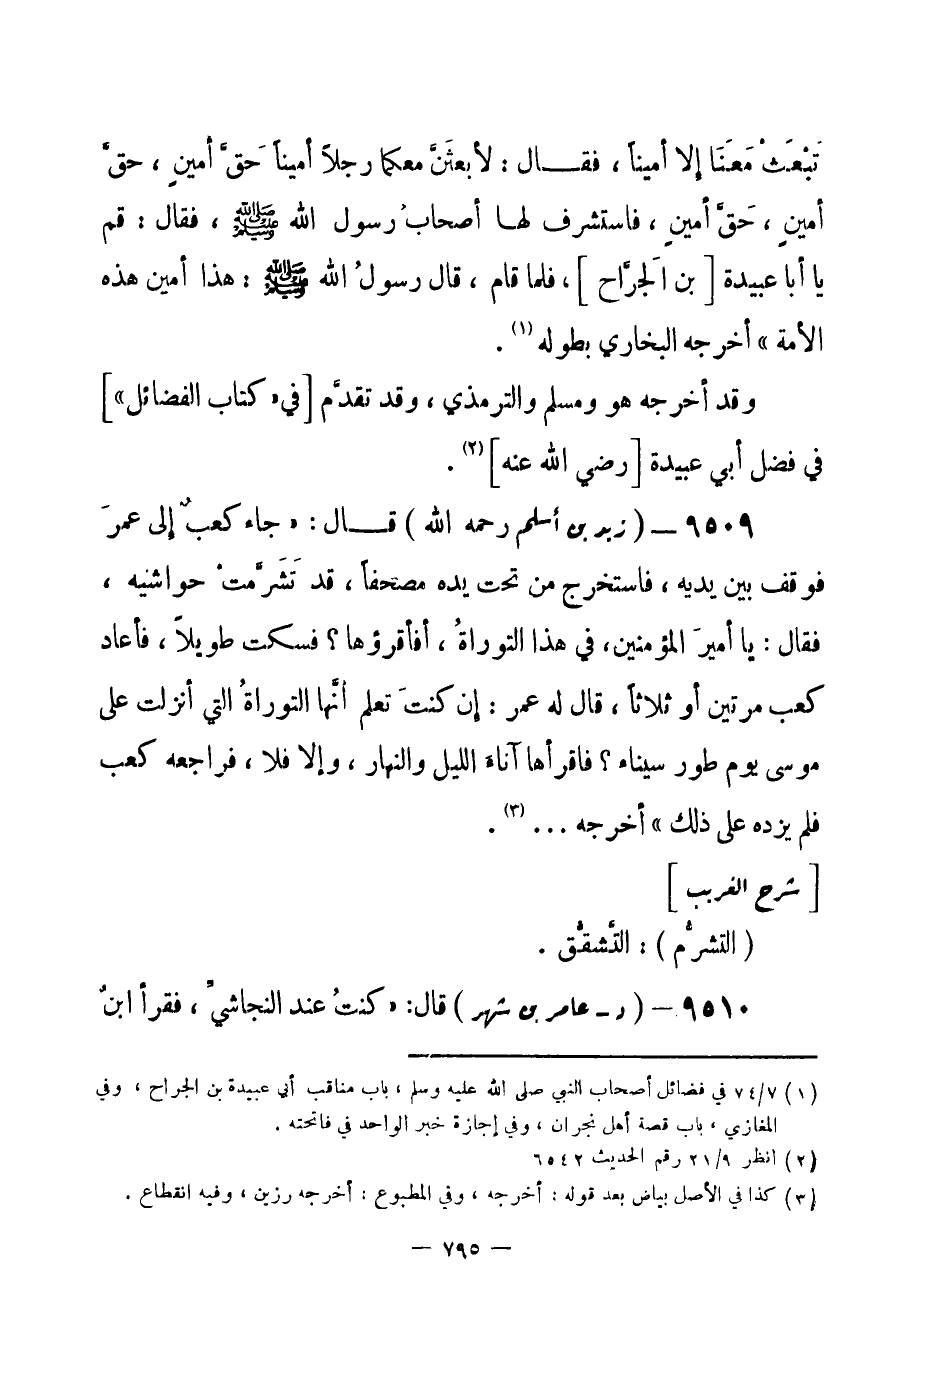 تَبْعَثْ مَعَنَا إلا أميناً ، فقـــال : لأبعثَنَّ معكما رجلاً أميناً حَقَّ أمينٍ ، حقَّ
أمينٍ ، حَقَّ أمينٍ ، فاستشرف لهـا أصحابُ رسول الله ﷺ ، فقال : قم
يا أبا عبيدة [ بن الجَرَّاح ] ، فلما قام ، قال رسولُ الله ﷺ : هذا أمين هذه
الأمة » أخرجه البخاري بطوله (١) .
وقد أخرجه هو ومسلم والترمذي ، وقد تقدَّم [في « كتاب الفضائل»]
في فضل أبي عبيدة [رضي الله عنه] (٢) .
٩٥٠٩ – ( زيد بن أسلم رحمه الله ) قـــال : « جاء كعبٌ إلى عمرَ
فوقف بين يديه ، فاستخرج من تحت يده مصحفاً ، قد تَشَرَّمتْ حواشيه ،
فقال : يا أميرَ المؤمنين، في هذا التوراةُ ، أفأقرؤها ؟ فسكت طويلاً ، فأعاد
كعب مرتين أو ثلاثاً ، قال له عمر : إن كنتَ تعلم أنَّها التوراةُ التي أنزلت على
موسى يوم طور سيناء ؟ فاقرأها آناءَ الليل والنهار ، وإلا فلا ، فراجعه كعب
فلم يزده على ذلك » أخرجه ... (٣) .
[ شرح الغريب ]
( التشرُّم ) : التَّشقُّق .
٩٥١٠ – ( د – عامر بن شهر ) قال: « كنتُ عند النجاشيِّ ، فقرأ ابنٌ
(١) ٧٤/٧ في فضائل أصحاب النبي صلى الله عليه وسلم ، باب مناقب أبي عبيدة بن الجراح ، وفي
المغازي ، باب قصة أهل نجران ، وفي إجازة خبر الواحد في فاتحته .
(٢) انظر ٢١/٩ رقم الحديث ٦٥٤٢
(٣) كذا في الأصل بياض بعد قوله : أخرجه ، وفي المطبوع : أخرجه رزين ، وفيه انقطاع .
– ٧٩٥ –